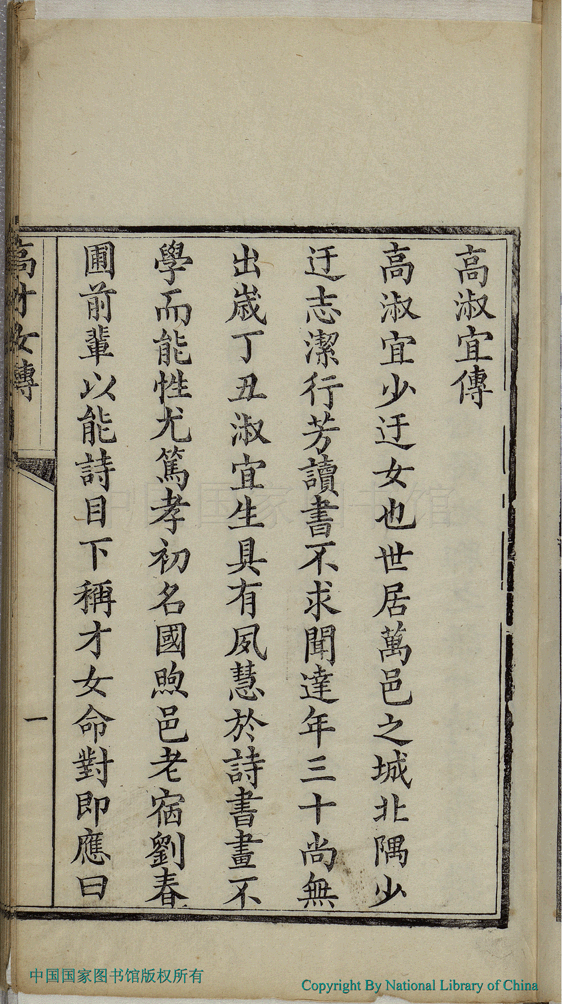 高淑宜傳
高淑宜少迂女也世居萬邑之城北隅少
迂志潔行芳讀書不求聞達年三十尚無
出歲丁丑淑宜生具有夙慧於詩書畫不
學而能性尤篤孝初名國煦邑老宿劉春
圃前輩以能詩目下稱才女命對即應曰
高才女傳
一
中国国家图书馆
中国国家图书馆版权所有
Copyright By National Library of China